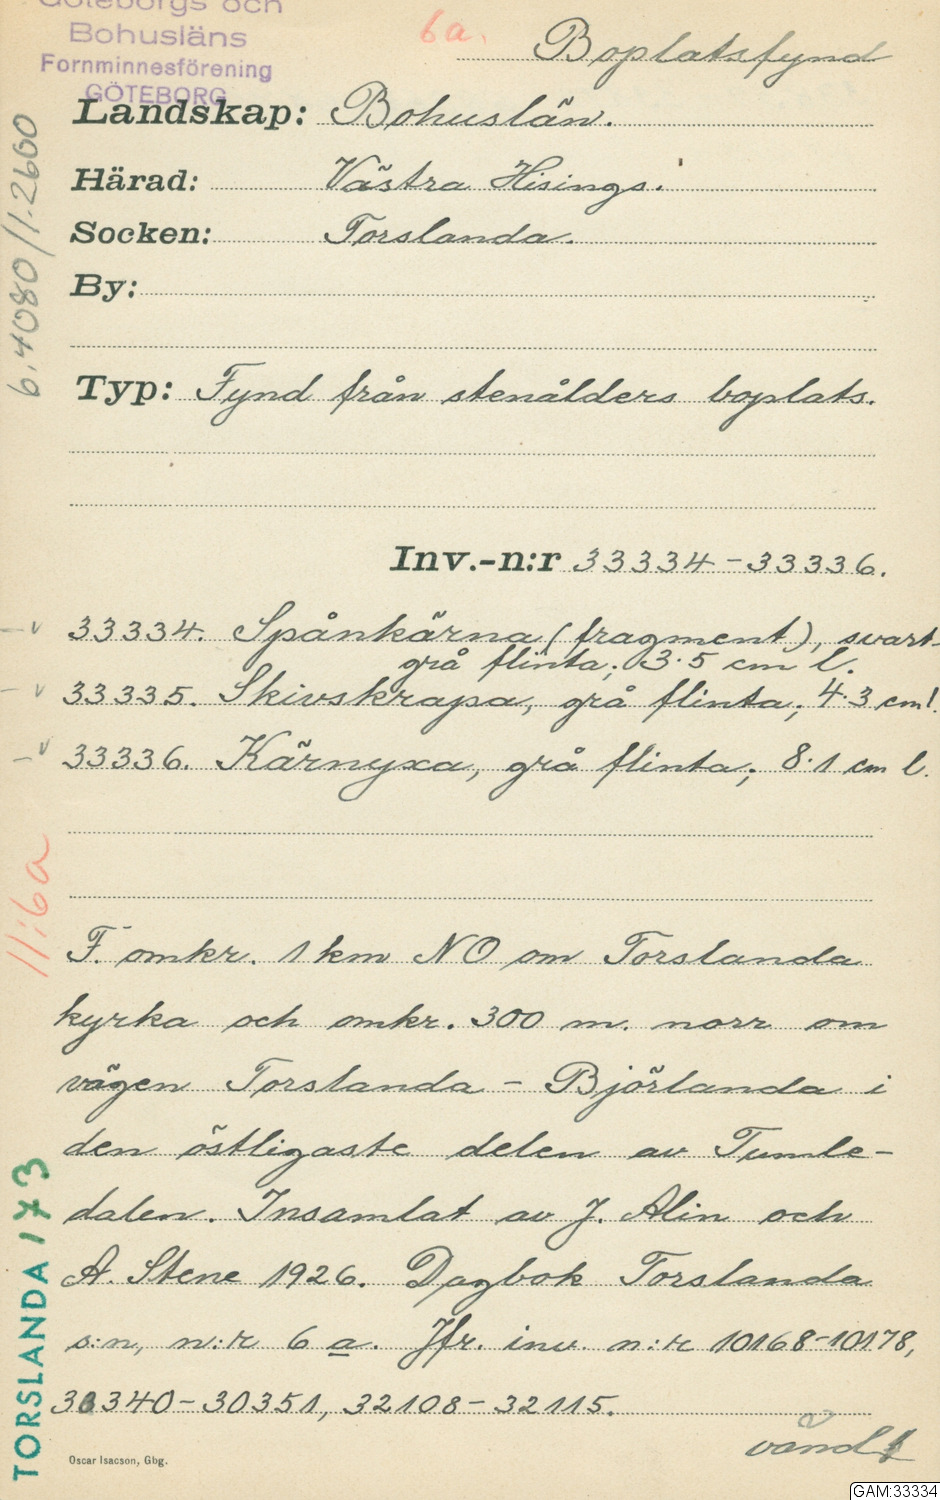 Göteborgs och
Bohusläns
Fornminnesförening
GÖTEBORG
6a.
Boplatsfynd
Landskap: Bohuslän.
Härad: Västra Hisings.
Socken: Torslanda.
By:
Typ: Fynd från stenålders boplats.
Inv.-n:r 33334-33336.
33334. Spånkärna (fragment), svart-
grå flinta; 3.5 cm l.
33335. Skivskrapa, grå flinta; 4.3 cm l.
33336. Kärnyxa, grå flinta; 8.1 cm l.
F. omkr. 1 km NO om Torslanda
kyrka och omkr. 300 m. norr om
vägen Torslanda - Björlanda i
den östligaste delen av Tumle-
dalen. Insamlat av J. Alin och
A. Stene 1926. Dagbok Torslanda
s:n, n:r 6 a. Jfr. inv. n:r 10168-10178,
30340-30351, 32108-32115.
vänd!
Oscar Isacson, Gbg.
6.4080/1.2600
11:6a
TORSLANDA 173
GAM:33334